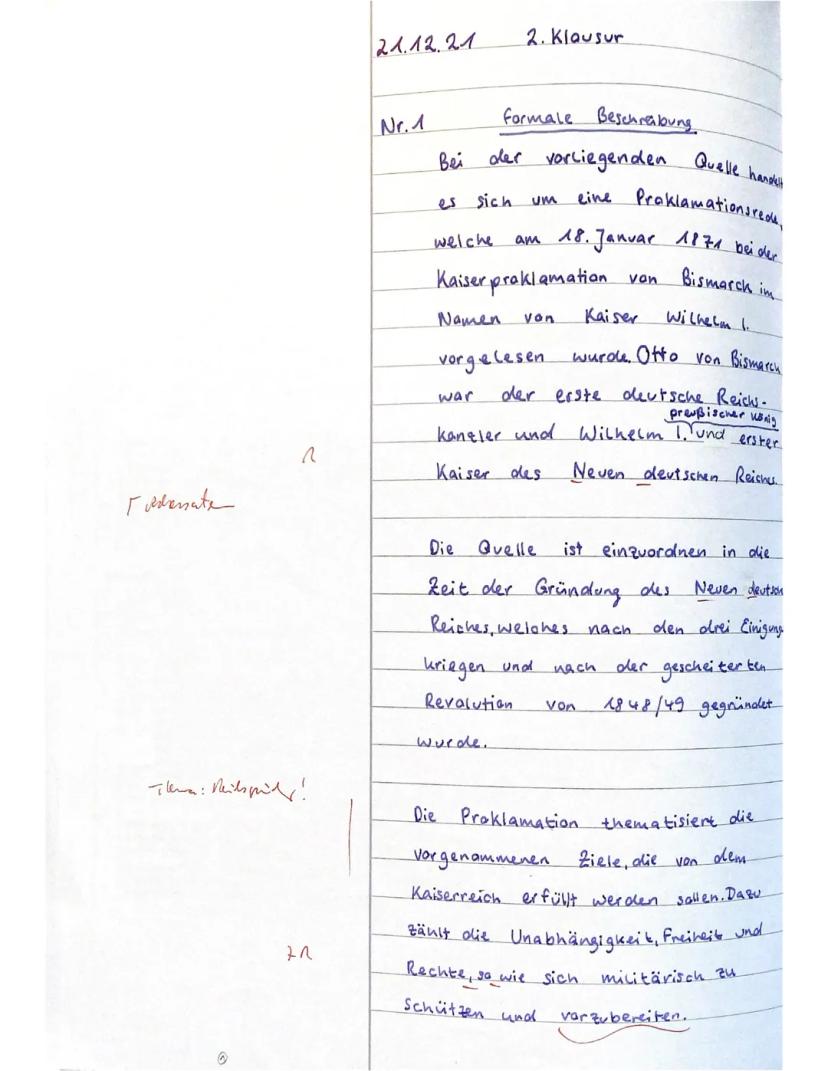 21.12.21 2. Klausur
Nr. 1 Formale Beschreibung
Bei der vorliegenden Quelle handelt
es sich um eine Proklamationsrede,
welche am 18. Januar 1871 bei der
Kaiserproklamation von Bismarck im
Namen von Kaiser Wilhelm I.
vorgelesen wurde. Otto von Bismarck
war der erste deutsche Reichs-
preußischer König
kanzler und Wilhelm I. und erster
Kaiser des Neuen deutschen Reiches.
Die Quelle ist einzuordnen in die
Zeit der Gründung des Neuen deutsch
Reiches, welches nach den drei Einigung
kriegen und nach der gescheiterten
Revolution von 1848/49 gegründet
wurde.
Thema: !
Die Proklamation thematisiert die
vorgenommenen Ziele, die von dem
Kaiserreich erfüllt werden sollen. Dazu
zählt die Unabhängigkeit, Freiheit und
Rechte, so wie sich militärisch zu
Schützen und vorzubereiten.